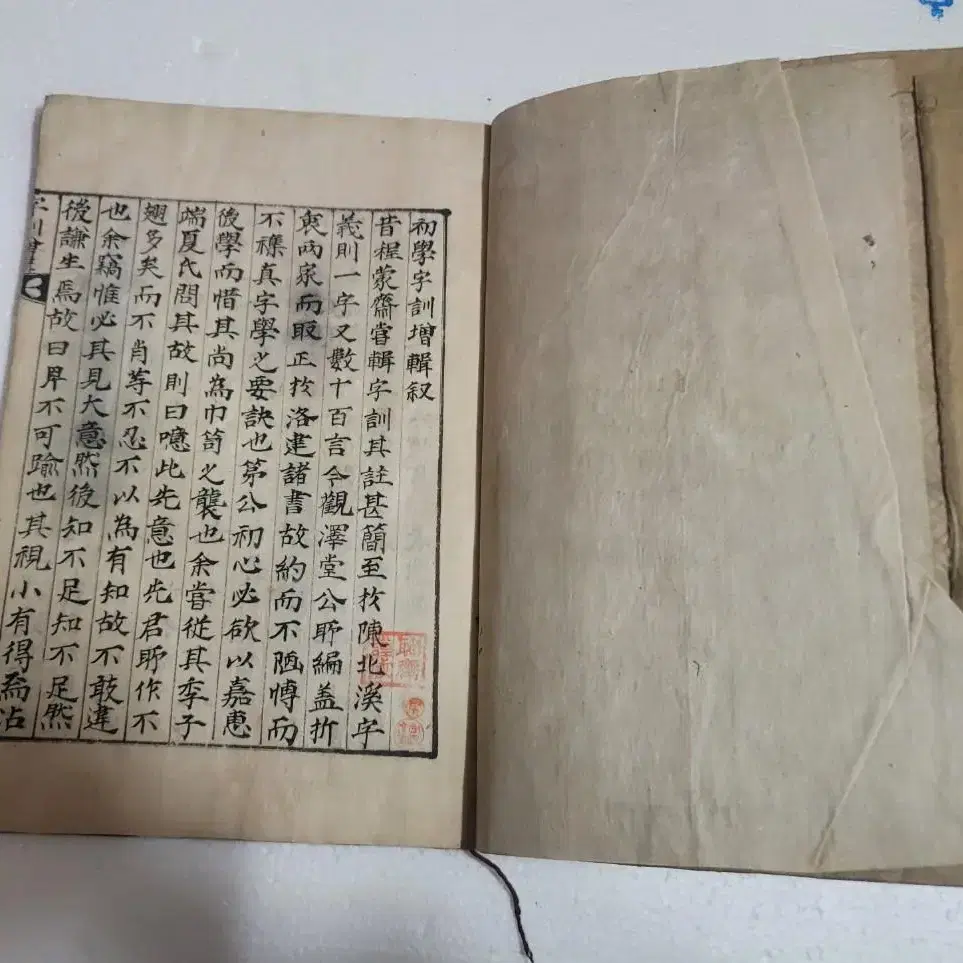 初學字訓增輯叙
昔程蒙齋嘗輯字訓其註甚簡至於陳北溪字
義則一字又數十百言今觀澤堂公所編盖折
衷兩家而取正於洛建諸書故約而不陋博而
不襍真字學之要訣也第公初心必欲以嘉惠
後學而惜其尚為巾笥之襲也余嘗從其季子
端夏氏問其故則曰噫此先意也先君所作不
翅多矣而不肖等不忍不以為有知故不敢違
也余竊惟必其見大意然後知不足知不足然
後謙生焉故曰卑不可踰也其視小有得焉沾
字訓